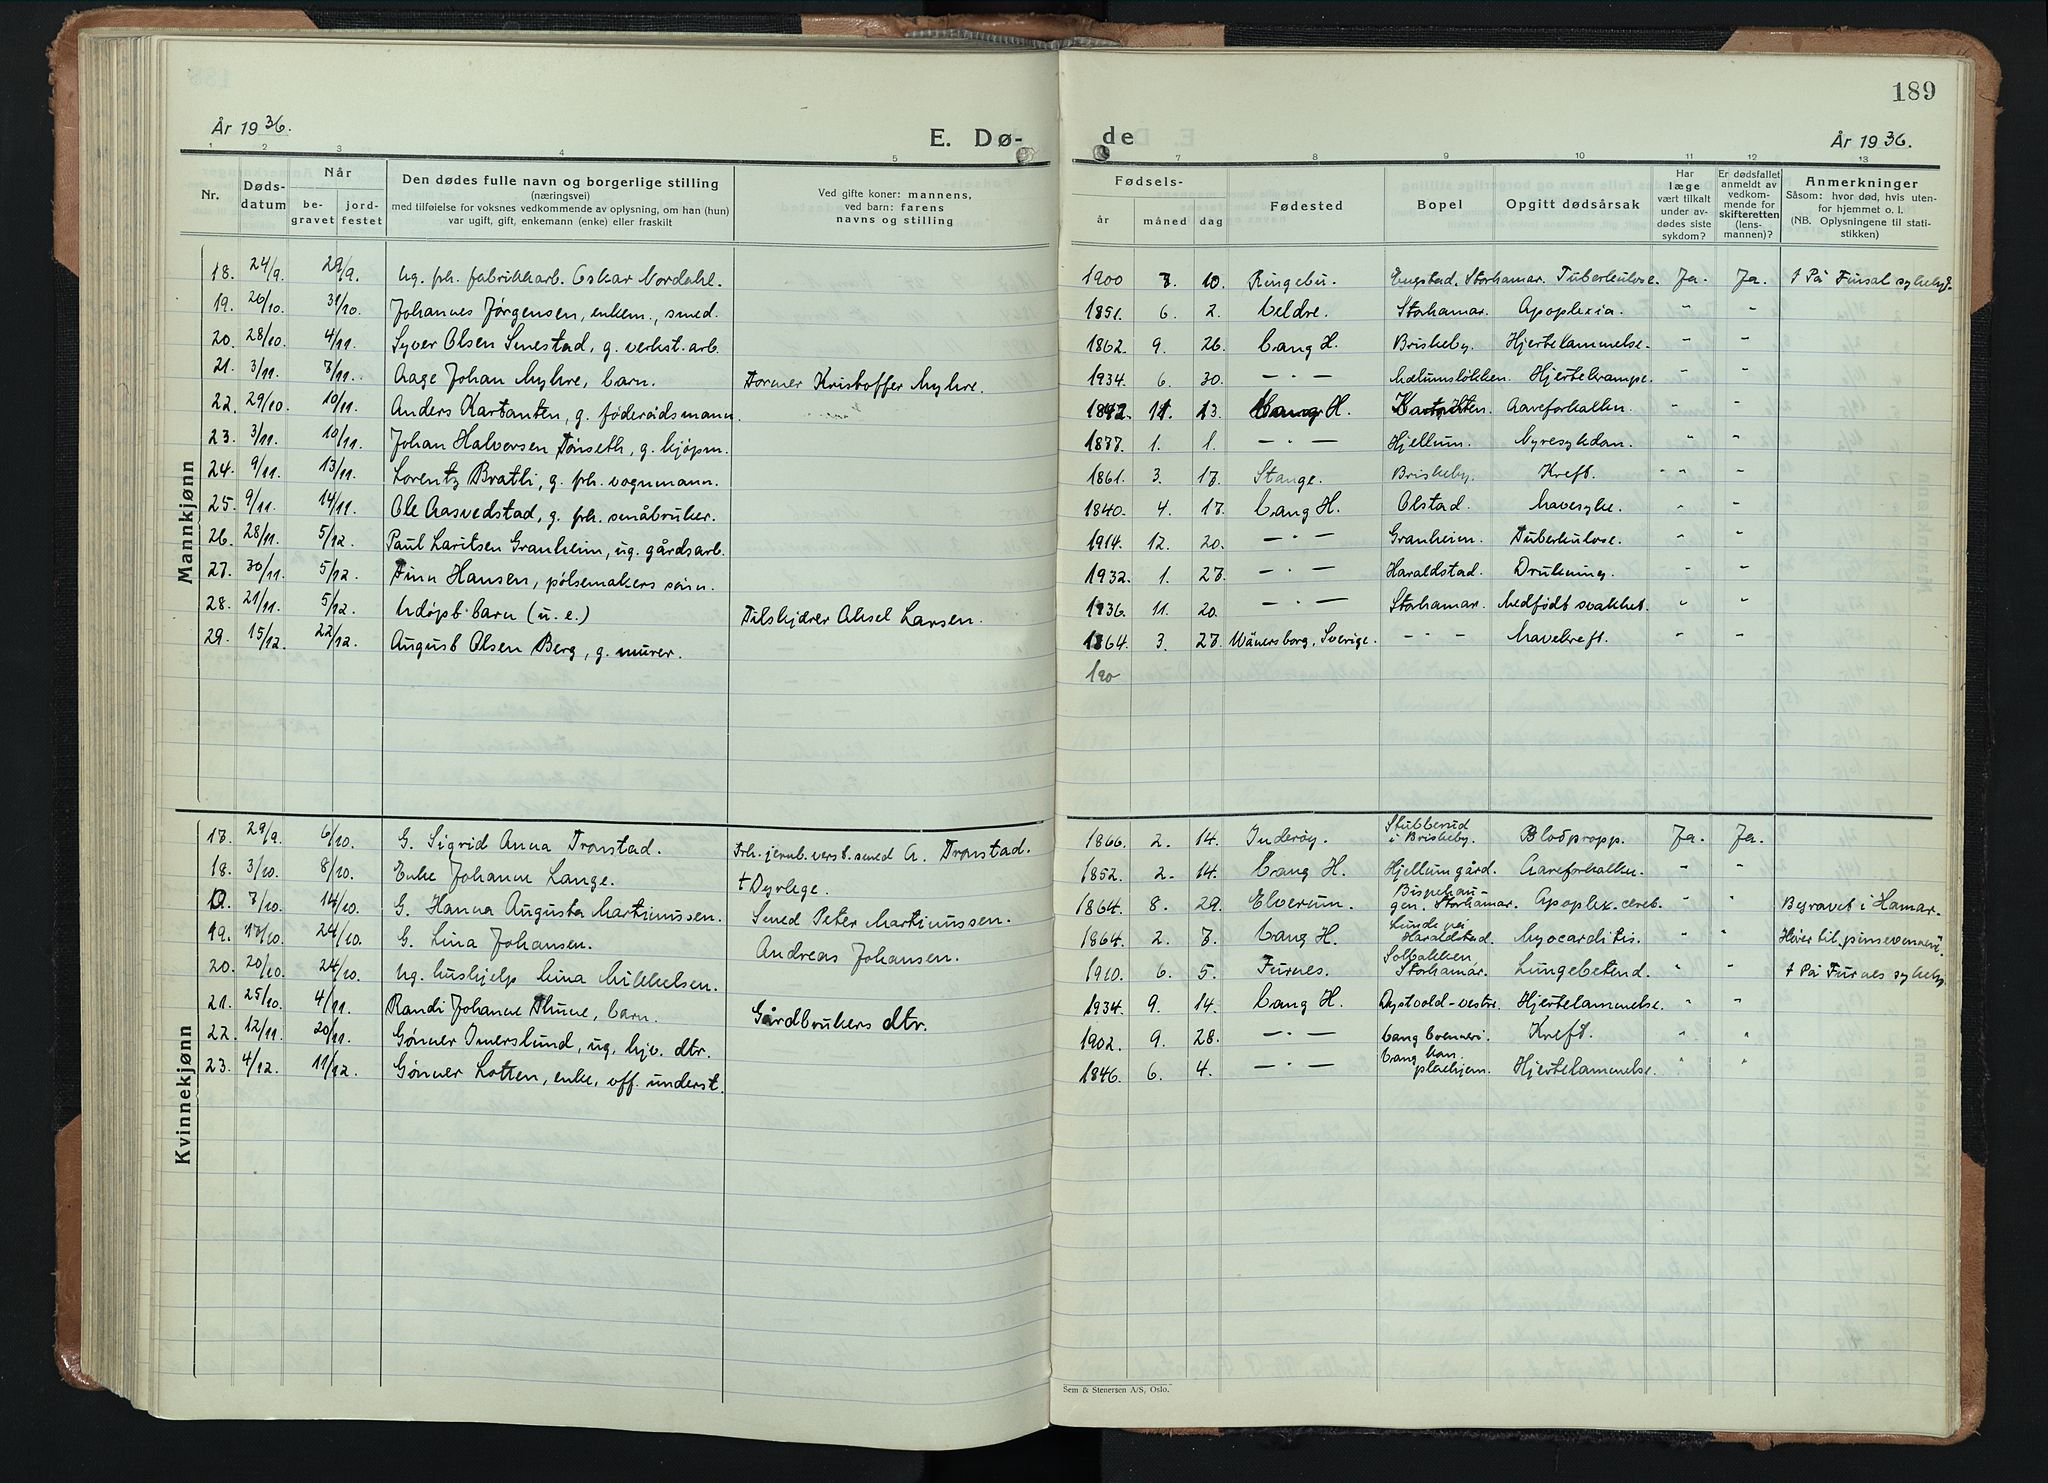 189
År 1936.
E. Dø-
de
År 1936.
1 2 3 4 5 7 8 9 10 11 12 13
Nr.
Døds-
datum
Når
be-
gravet
jord-
festet
Den dødes fulle navn og borgerlige stilling
(næringsvei)
med tilføielse for voksnes vedkommende av oplysning, om han (hun)
var ugift, gift, enkemann (enke) eller fraskilt
Ved gifte koner: mannens,
ved barn: farens
navns og stilling
Fødsels-
år måned dag
Fødested
Bopel
Opgitt dødsårsak
Har
læge
vært tilkalt
under av-
dødes siste
sykdom?
Er dødsfallet
anmeldt av
vedkom-
mende for
skifteretten
(lens-
mannen)?
Anmerkninger
Såsom: hvor død, hvis uten-
for hjemmet o. l.
(NB. Oplysningene til stati-
stikken)
Mannkjønn
18. 24/9. 29/9. Ug. fh. fabrikkarb. Oskar Nordahl. 1900 7. 10. Ringebu. Engstad, Storhamar. Tuberkulose. Ja. Ja. † På Finsal sykehj.
19. 26/10. 31/10. Johannes Jørgensen, enkem., smed. 1851. 6. 2. Veldre. Storhamar. Apoplexia. " "
20. 28/10. 4/11. Syver Olsen Smestad, g. verkst.arb. 1862. 9. 26. Vang H. Briskeby. Hjertelammelse. " "
21. 3/11. 7/11. Aage Johan Myhre, barn. Former Kristoffer Myhre. 1934. 6. 30. — " — Mælumsløkken. Hjertekrampe. " "
22. 29/10. 10/11. Anders Kartanten, g. føderådsmann. 11. 13. Vang H. Aareforkalkn. " "
23. 3/11. 10/11. Johan Halvorsen Tønseth, g. kjøpm. 1877. 1. 1. — " — Hjellum. Nyresykdom. " "
24. 9/11. 13/11. Lorentz Bratli, g. fh. vognmann. 1861. 3. 17. Stange. Briskeby. Kreft. " "
25. 9/11. 14/11. Ole Aasvedstad, g. fh. småbruker. 1840. 4. 17. Vang H. Olstad. Mavesyke. " "
26. 28/11. 5/12. Paul Lauritsen Granheim, ug. gårdsarb. 1914. 12. 20. — " — Granheim. Tuberkulose. " "
27. 30/11. 5/12. Finn Hansen, pølsemakers sønn. 1932. 1. 27. — " — Haraldstad. Drukning. " "
28. 21/11. 5/12. Udøpt barn (u. e.) Tilskjærer Aksel Larsen. 1936. 11. 20. — " — Storhamar. Medfødt svakhet. " "
29. 15/12. 22/12. August Olsen Berg, g. murer. 1864. 3. 27. Wänersborg, Sverige. — " — Mavekreft. " "
190
Kvinnekjønn
17. 29/9. 6/10. G. Sigrid Anna Tronstad. Frh. jernb.verkst.smed A. Tronstad. 1866. 2. 14. Inderøy. Stubberud
i Briskeby. Blodpropp. Ja. Ja.
18. 3/10. 8/10. Enke Johanne Lange. † Dyrlege. 1852. 2. 14. Vang H. Hjellum gård. Aareforkalkn. " "
7/10. 14/10. G. Hanna Augusta Martinussen. Smed Peter Martinussen. 1864. 8. 29. Elverum. Bispehau-
gen, Storhamar. Apoplex. cereb. " " Begravet i Hamar.
19. 17/10. 24/10. G. Lina Johansen. Andreas Johansen. 1864. 2. 7. Vang H. Linde på
Haraldstad. Myocarditis. " " Hører til pinsevenner.
20. 20/10. 24/10. Ug. hushjelp Mina Mikkelsen. 1910. 6. 5. Furnes. Solbakken,
Storhamar. Lungebetend. " " † På Furnes sykehj.
21. 25/10. 4/11. Randi Johanne Thune, barn. Gårdbrukers dtr. 1934. 9. 14. Vang H. Dystvold-vestre. Hjertelammelse. " "
22. 12/11. 20/11. Gønner Imerslund, ug. hjv. dtr. 1902. 9. 28. — " — Vang Kreft. " "
23. 4/12. 11/12. Gønner Lotten, enke, off. underst. 1846. 6. 4. — " — Vang kom.
pleiehjem. Hjertelammelse. " "
Sem & Stenersen A/S, Oslo.